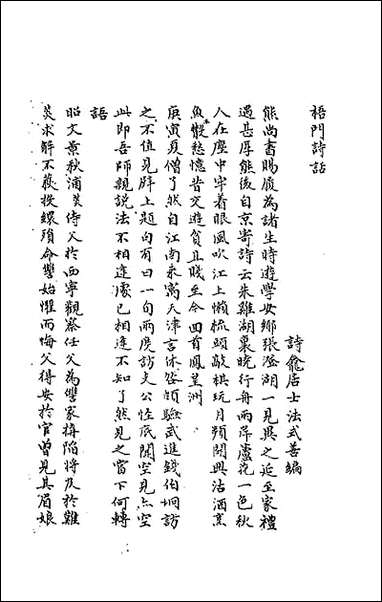 梧門詩話
詩龕居士法式善編
熊尚書賜履為諸生時遊學安鄉張澄湖一見異之延至家禮
遇甚厚熊後自京寄詩云朱雞湖裏曉行舟兩岸蘆花一色秋
人在壁中牢着眼風吹江上懶梳頭敲棋玩月頻開興沽酒烹
魚慰愁憶昔交遊貧且賤至今回首鳳呈洲
庚寅夏僧了然自江南來寓天津言休咎頗驗武進錢伯坰訪
之不值見辟上題句有曰一句兩度訪支公性底關空見亦空
此即吾師親說法不相逢處已相逢不知了然見之當下何轉
語
昭文景秋浦英侍父於西寧觀察任父為讐家搆陷將及於難
英求解不獲投繯殞命讐始懼而悔父得安於官曾見其眉娘